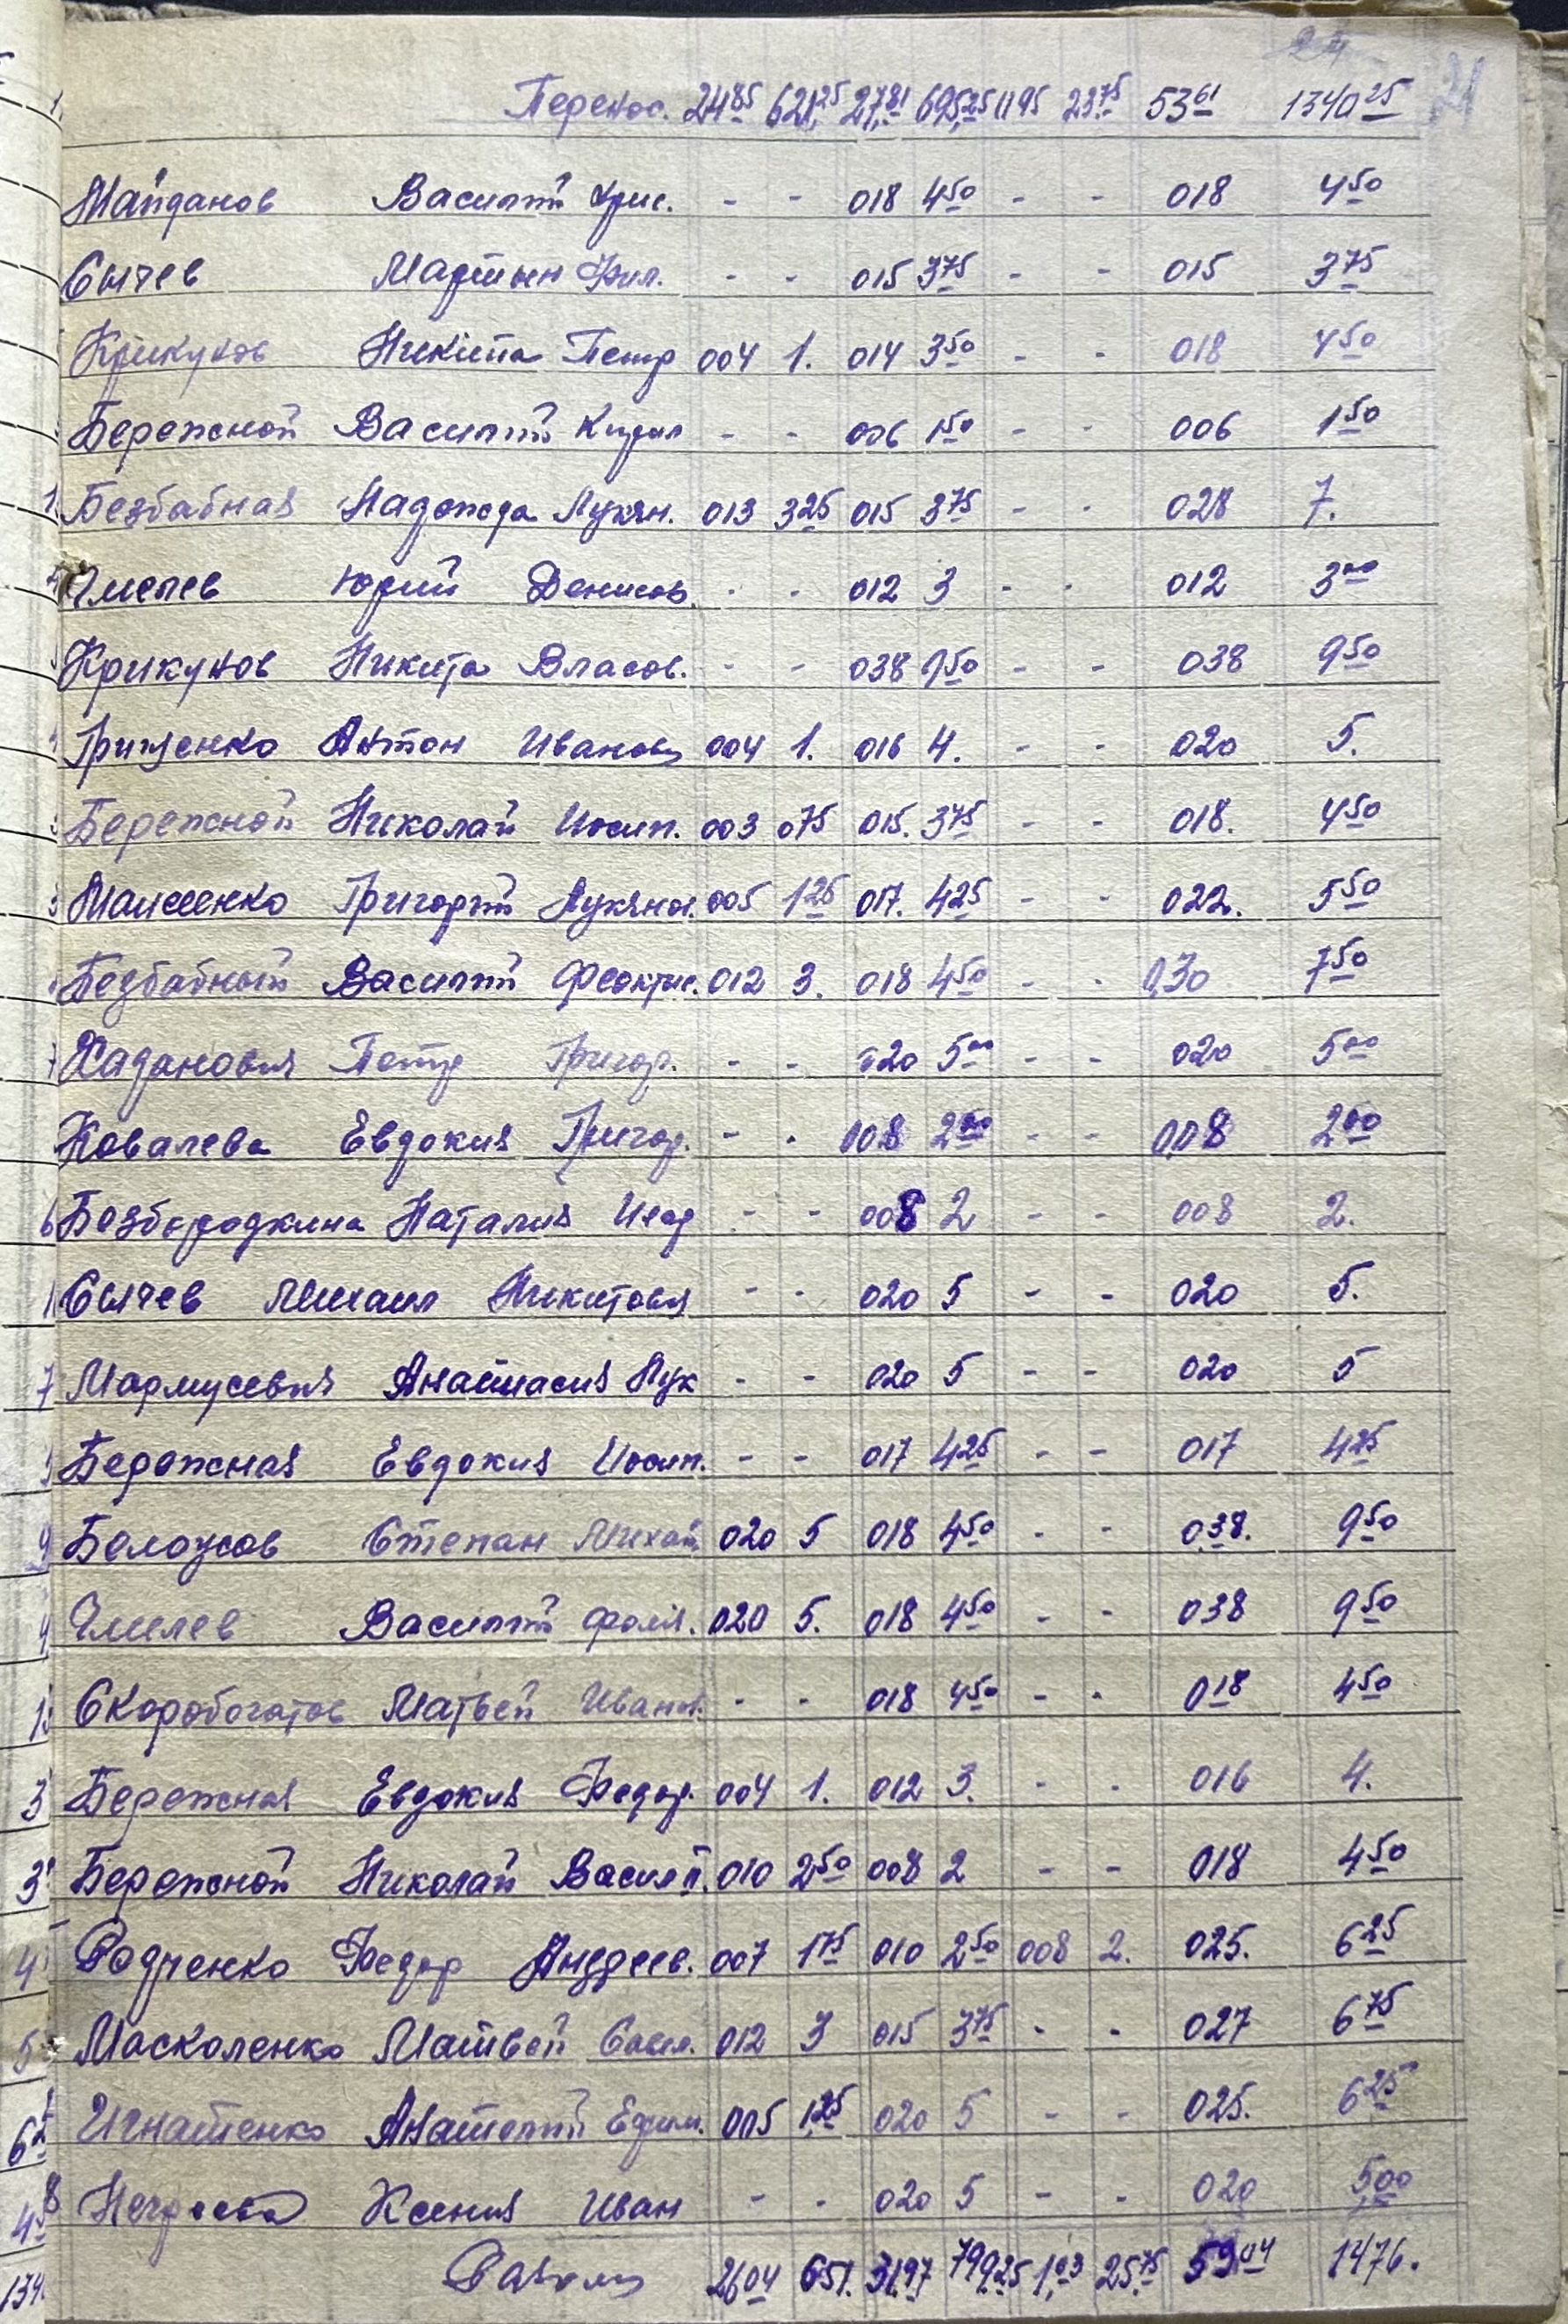 24
Перенос. 24 85 621,25 27,81 695,25 0,95 23,75 53 61 1340 25 21
Майданов Василий Хрис. - - 018 4 50 - - 018 4 50
Сычев Мартын Фил. - - 015 3 75 - - 015 3 75
Крикунов Никита Петр 004 1. 014 3 50 - - 018 4 50
Бережной Василий Кирил - - 006 1 50 - - 006 1 50
Безбабная Надежда Лукян. 013 3 25 015 3 75 - - 028 7.
Чмелев Юрий Денисов. - - 012 3 - - 012 3 00
Крикунов Никита Власов. - - 038 9 50 - - 038 9 50
Грищенко Антон Иванов 004 1. 016 4. - - 020 5.
Бережной Николай Иосип. 003 0 75 015. 3 75 - - 018. 4 50
Григорий Лукянов. 005 1 25 017. 4 25 - - 022. 5 50
Безбабный Василий Феоктис. 012 3. 018 4 50 - - 0,30 7 50
Хаданович Петр Григор. - - 020 5 00 - - 020 5 00
Ковалева Евдокия Григор. - - 008 2 00 - - 0,08 2 00
Безбородкина Наталия - - 008 2 - - 008 2.
Сычев Михаил Никитович - - 020 5 - - 020 5.
Мармусевич Анастасия Лук - - 020 5 - - 020 5
Бережная Евдокия Иосип. - - 017 4 25 - - 017 4 25
Белоусов Степан Михай 020 5 018 4 50 - - 0,38. 9 50
Чмелев Василий Фомич. 020 5. 018 4 50 - - 038 9 50
Скоробогатов Матвей Иванов. - - 018 4 50 - - 018 4 50
Бережная Евдокия Федор. 004 1. 012 3. - - 016 4.
Бережной Николай Васил. 010 2 50 008 2 - - 018 4 50
Радченко Федор Андреев. 007 1 75 010 2 50 008 2. 025. 6 25
Москаленко Матвей Савел. 012 3 015 3 75 - - 027 6 75
Игнатенко Анатолий Ефим. 005 1,25 020 5 - - 025. 6 25
Ксения Иван - - 020 5 - - 020 5,00
26 04 651. 31,97 799,25 1,03 25,75 59 04 1476.